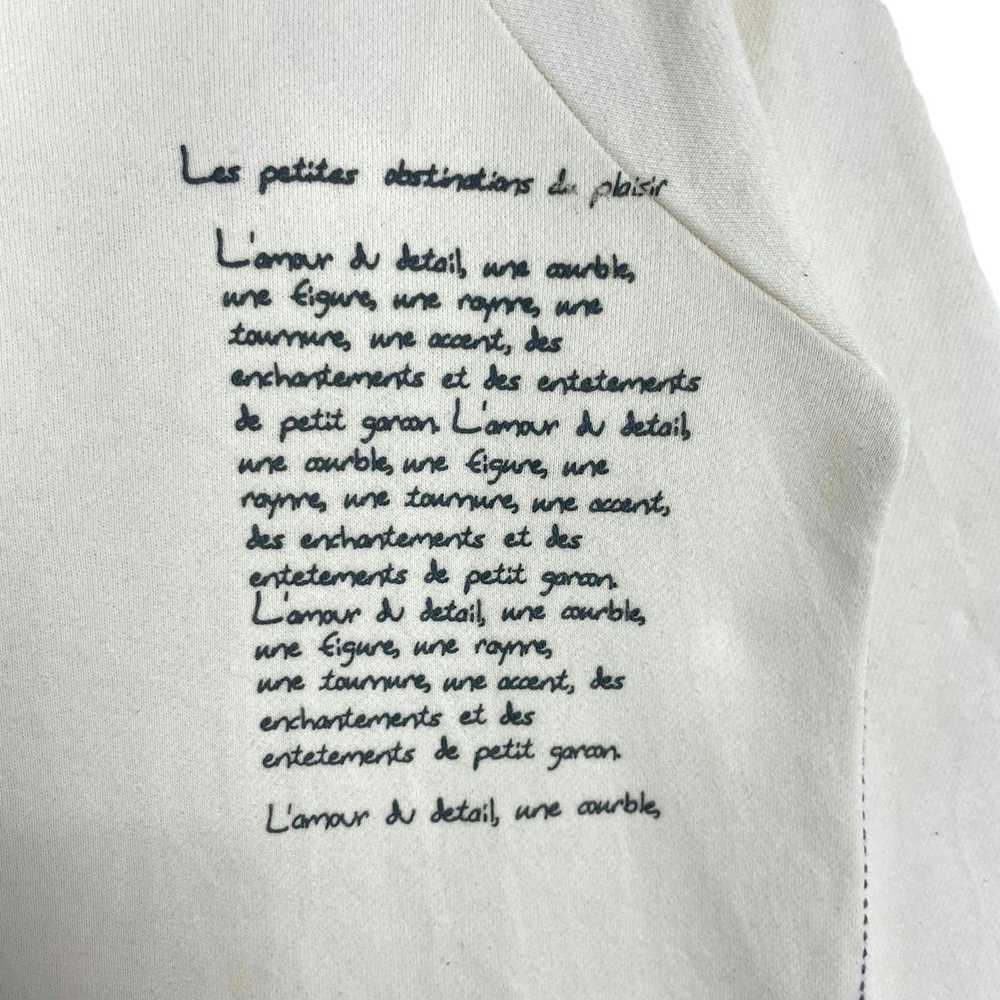 Les petites obstinations du plaisir
L'amour du detail, une courble,
une figure, une raynre, une
tournure, une accent, des
enchantements et des entetements
de petit garcon. L'amour du detail,
une courble, une figure, une
raynre, une tournure, une accent,
des enchantements et des
entetements de petit garcon.
L'amour du detail, une courble,
une figure, une raynre,
une tournure, une accent, des
enchantements et des
entetements de petit garcon.
L'amour du detail, une courble,